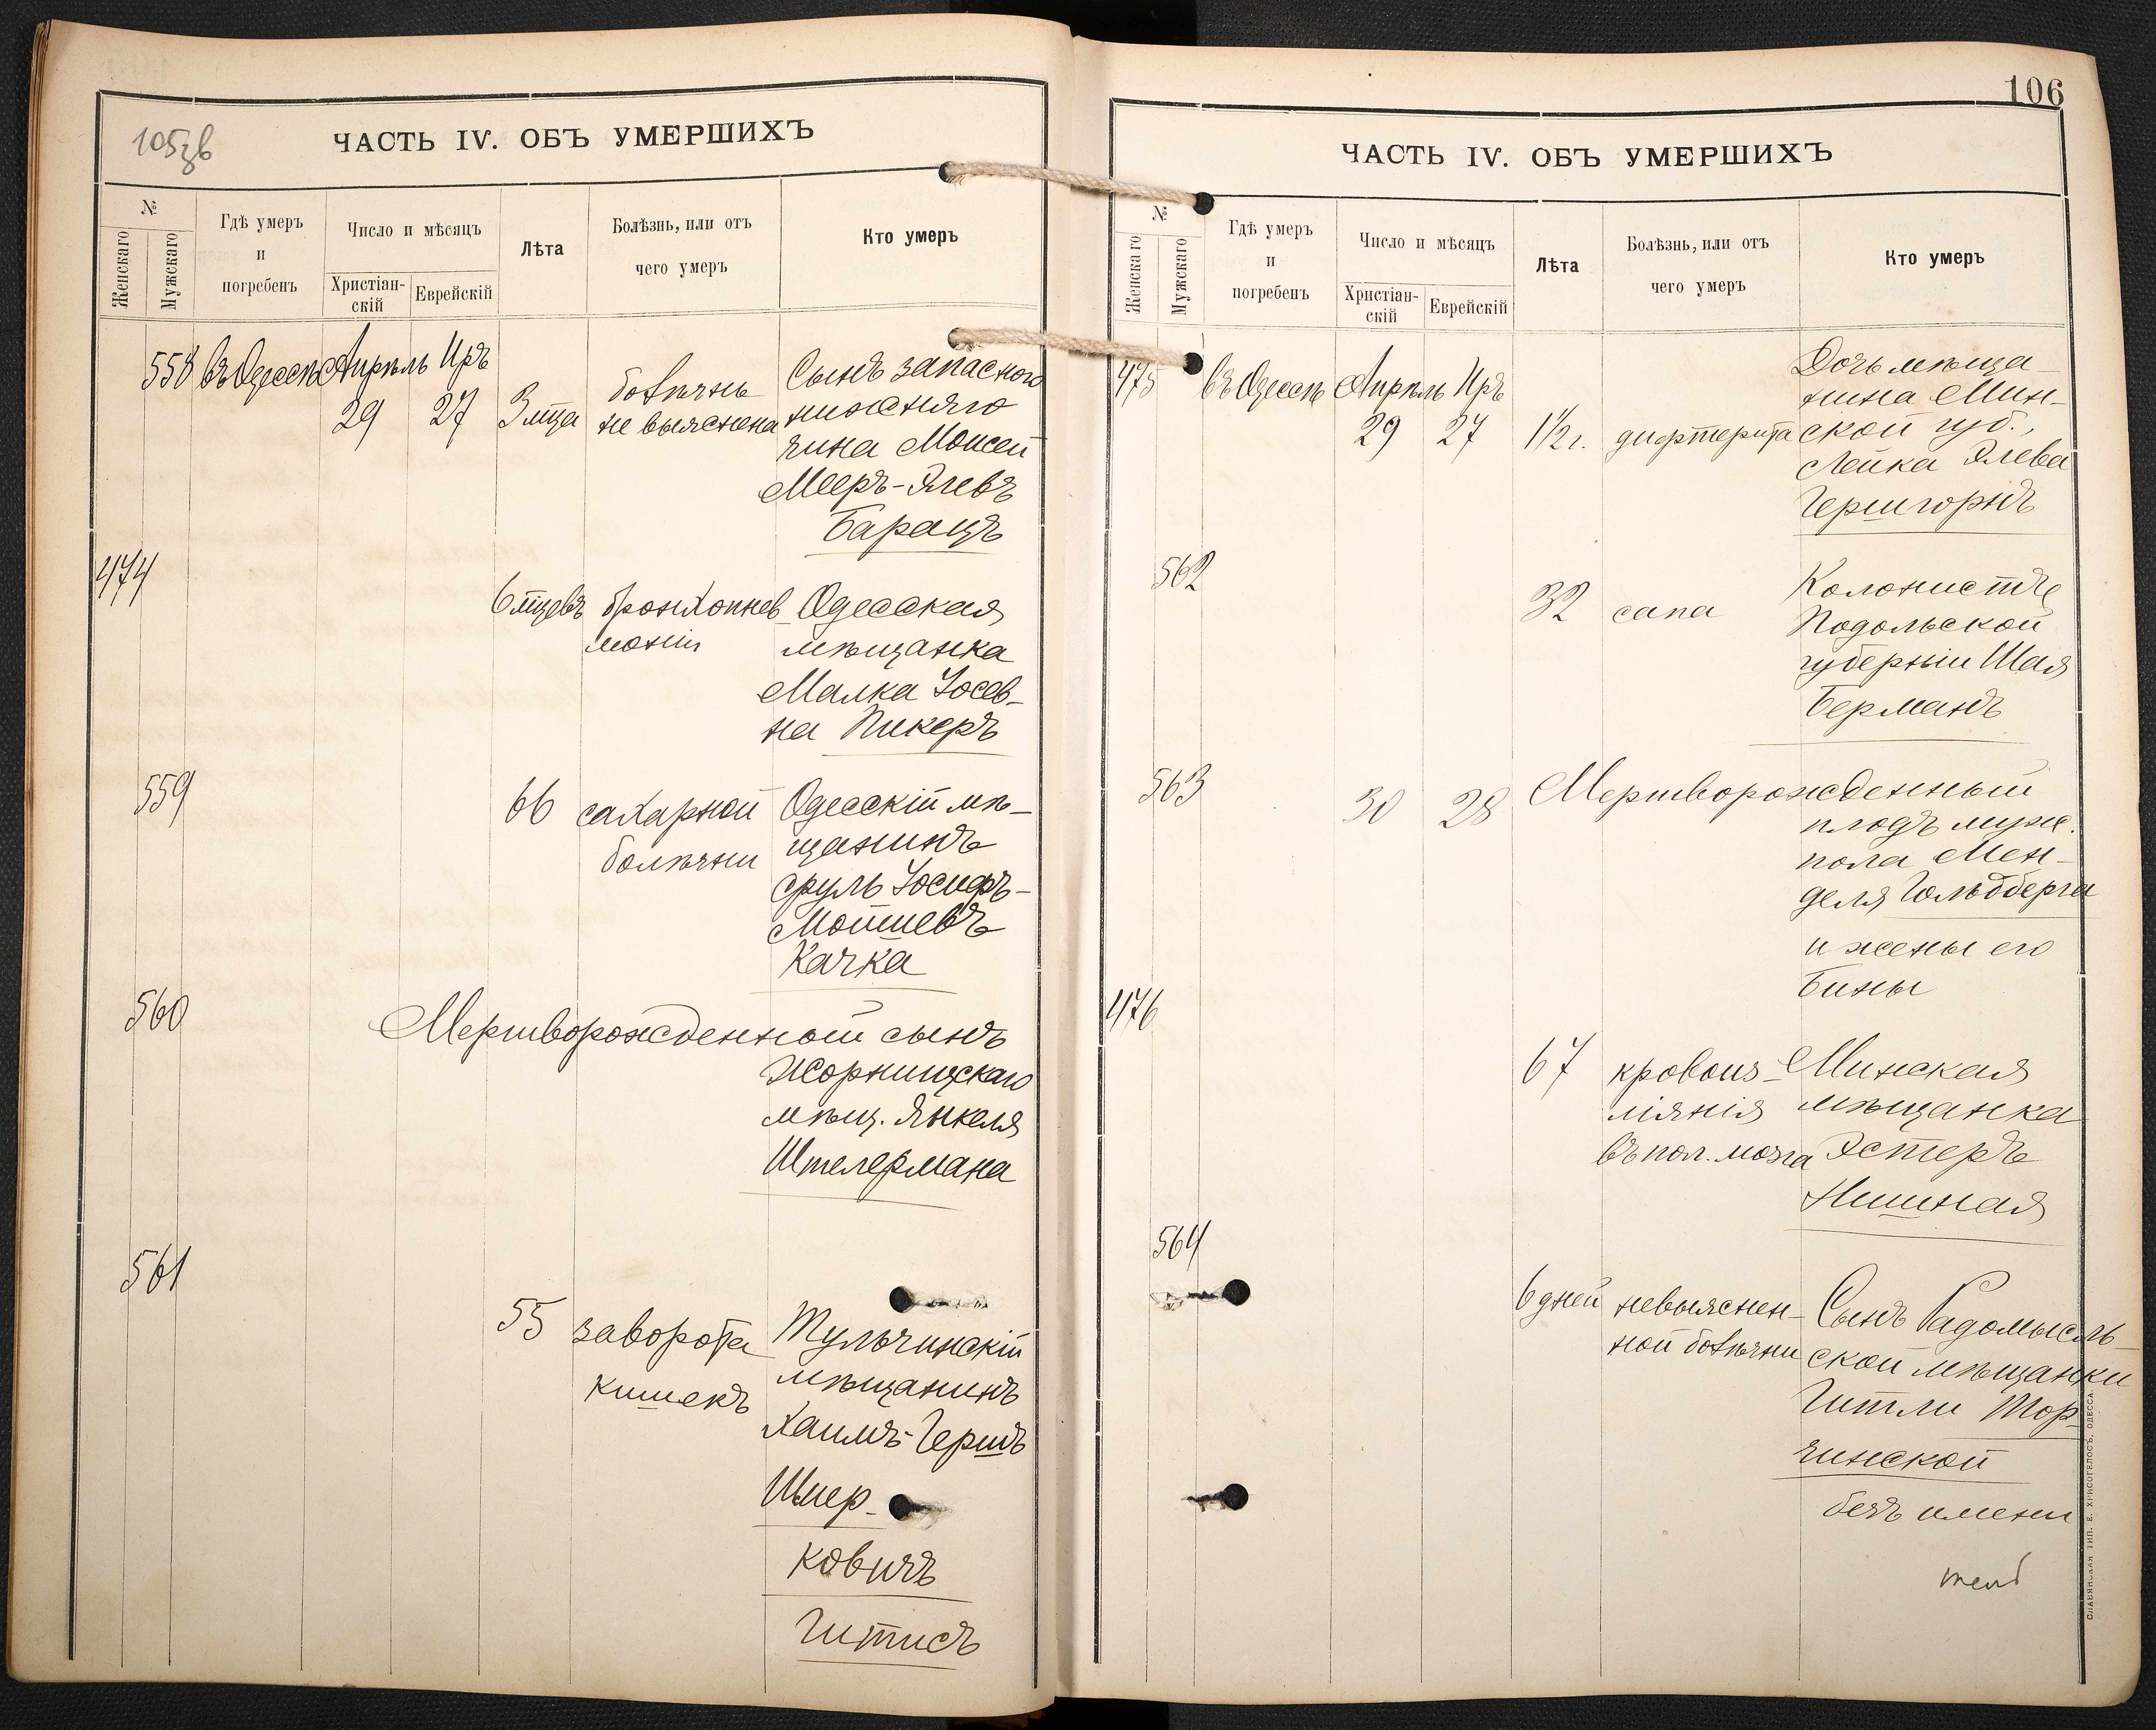 105зв
ЧАСТЬ IV. ОБЪ УМЕРШИХЪ
№
Женскаго
Мужскаго
Гдѣ умеръ
и
погребенъ
Число и мѣсяцъ
Христіан-
скій
Еврейскій
Лѣта
Болѣзнь, или отъ
чего умеръ
Кто умеръ
558 въ Одессѣ Апрѣль Иръ
29 27 3 мца
болѣзнь
не выяснена
Сынъ запасного
нижняго
чина Моисей
Мееръ-Элевъ
Барацъ
474
6 мцевъ
бронхопнев
моніи
Одесская
мѣщанка
Малка Іосев-
на Пикеръ
559
66
сахарной
болѣзни
Одесскій мѣ-
щанинъ
Сруль Іосифъ-
Мотиевъ
Качка
560
Мертворожденной сынъ
Жорнищскаго
мѣщ. Янкеля
Штелермана
561
55
заворота
кишекъ
Тульчинскій
мѣщанинъ
Хаимъ-Гершъ
Шмер-
ковичъ
Гитисъ
106
ЧАСТЬ IV. ОБЪ УМЕРШИХЪ
№
Женскаго
Мужскаго
Гдѣ умеръ
и
погребенъ
Число и мѣсяцъ
Христіан-
скій
Еврейскій
Лѣта
Болѣзнь, или отъ
чего умеръ
Кто умеръ
475 въ Одессѣ Апрѣль Иръ
29 27 1½ г. дифтерита
Дочь мѣща-
нина Мин-
ской губ.,
Лейка Элева
Гершгорнъ
562
32 сапа
Колонистъ
Подольской
губерніи Шая
Берманъ
563
30 28 Мертворожденный
плодъ муж.
пола Мен-
деля Гольдберга
и жены его
Бины
476
67
кровоиз-
ліянія
въ пол. мозга
Минская
мѣщанка
Эстеръ
Нишная
564
6 дней
невыяснен-
ной болѣзни
Сынъ Радомысль-
ской мѣщанки
Гитли Тор-
чинской
безъ имени
СЛАВЯНСКАЯ ТИП. Е. ХРИСОГЕЛОСЪ, ОДЕССА.